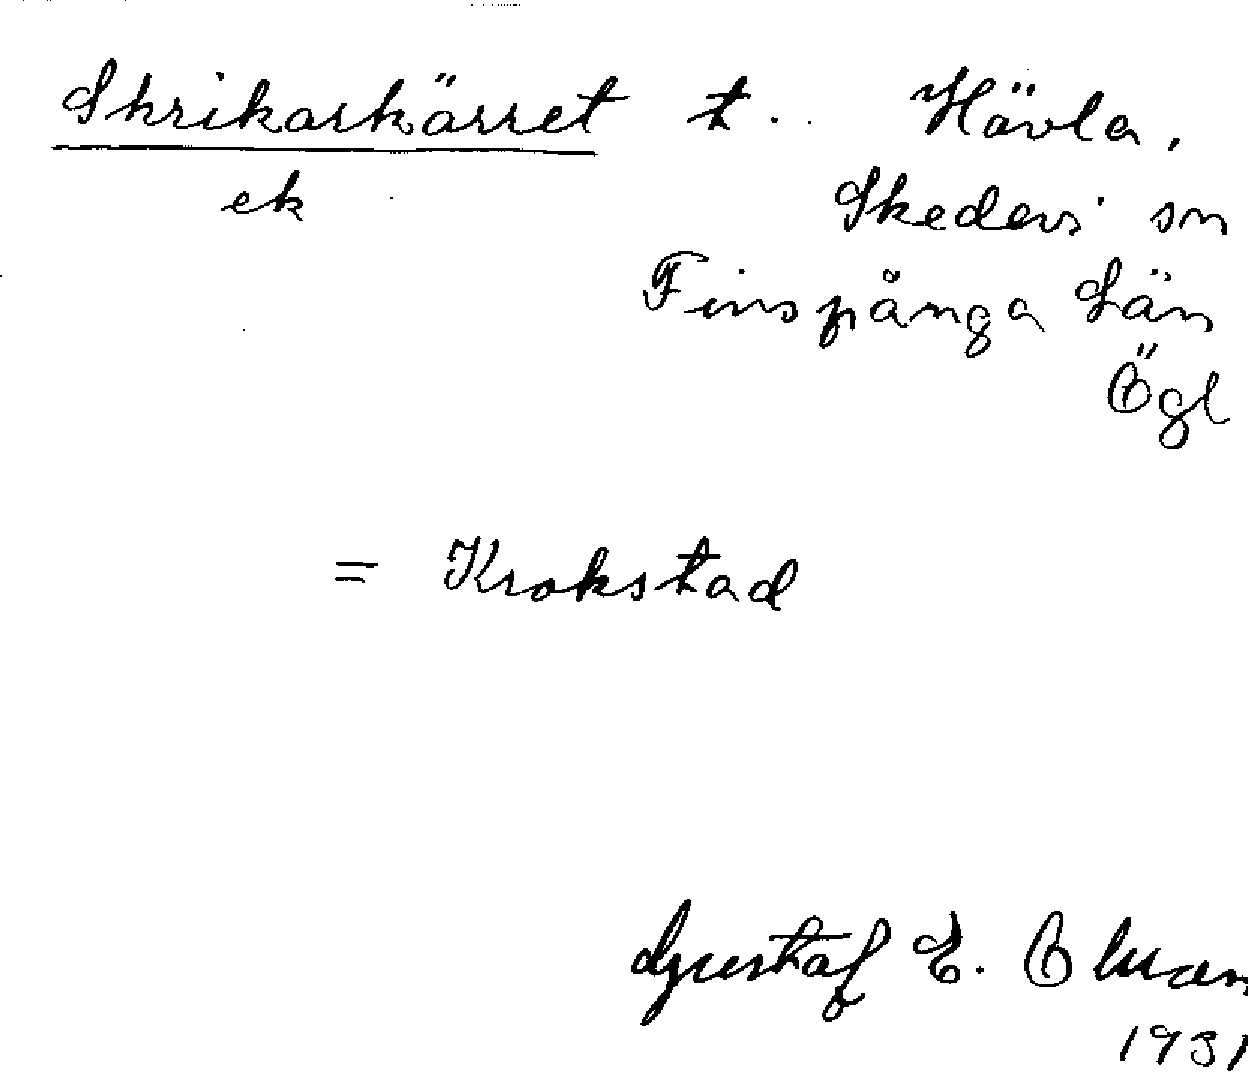 Skrikarkärret t. Hävla,
ek Skedevi sn
Finspånga Län
Ögl
= Krokstad
Gustaf E. Ohman
1931